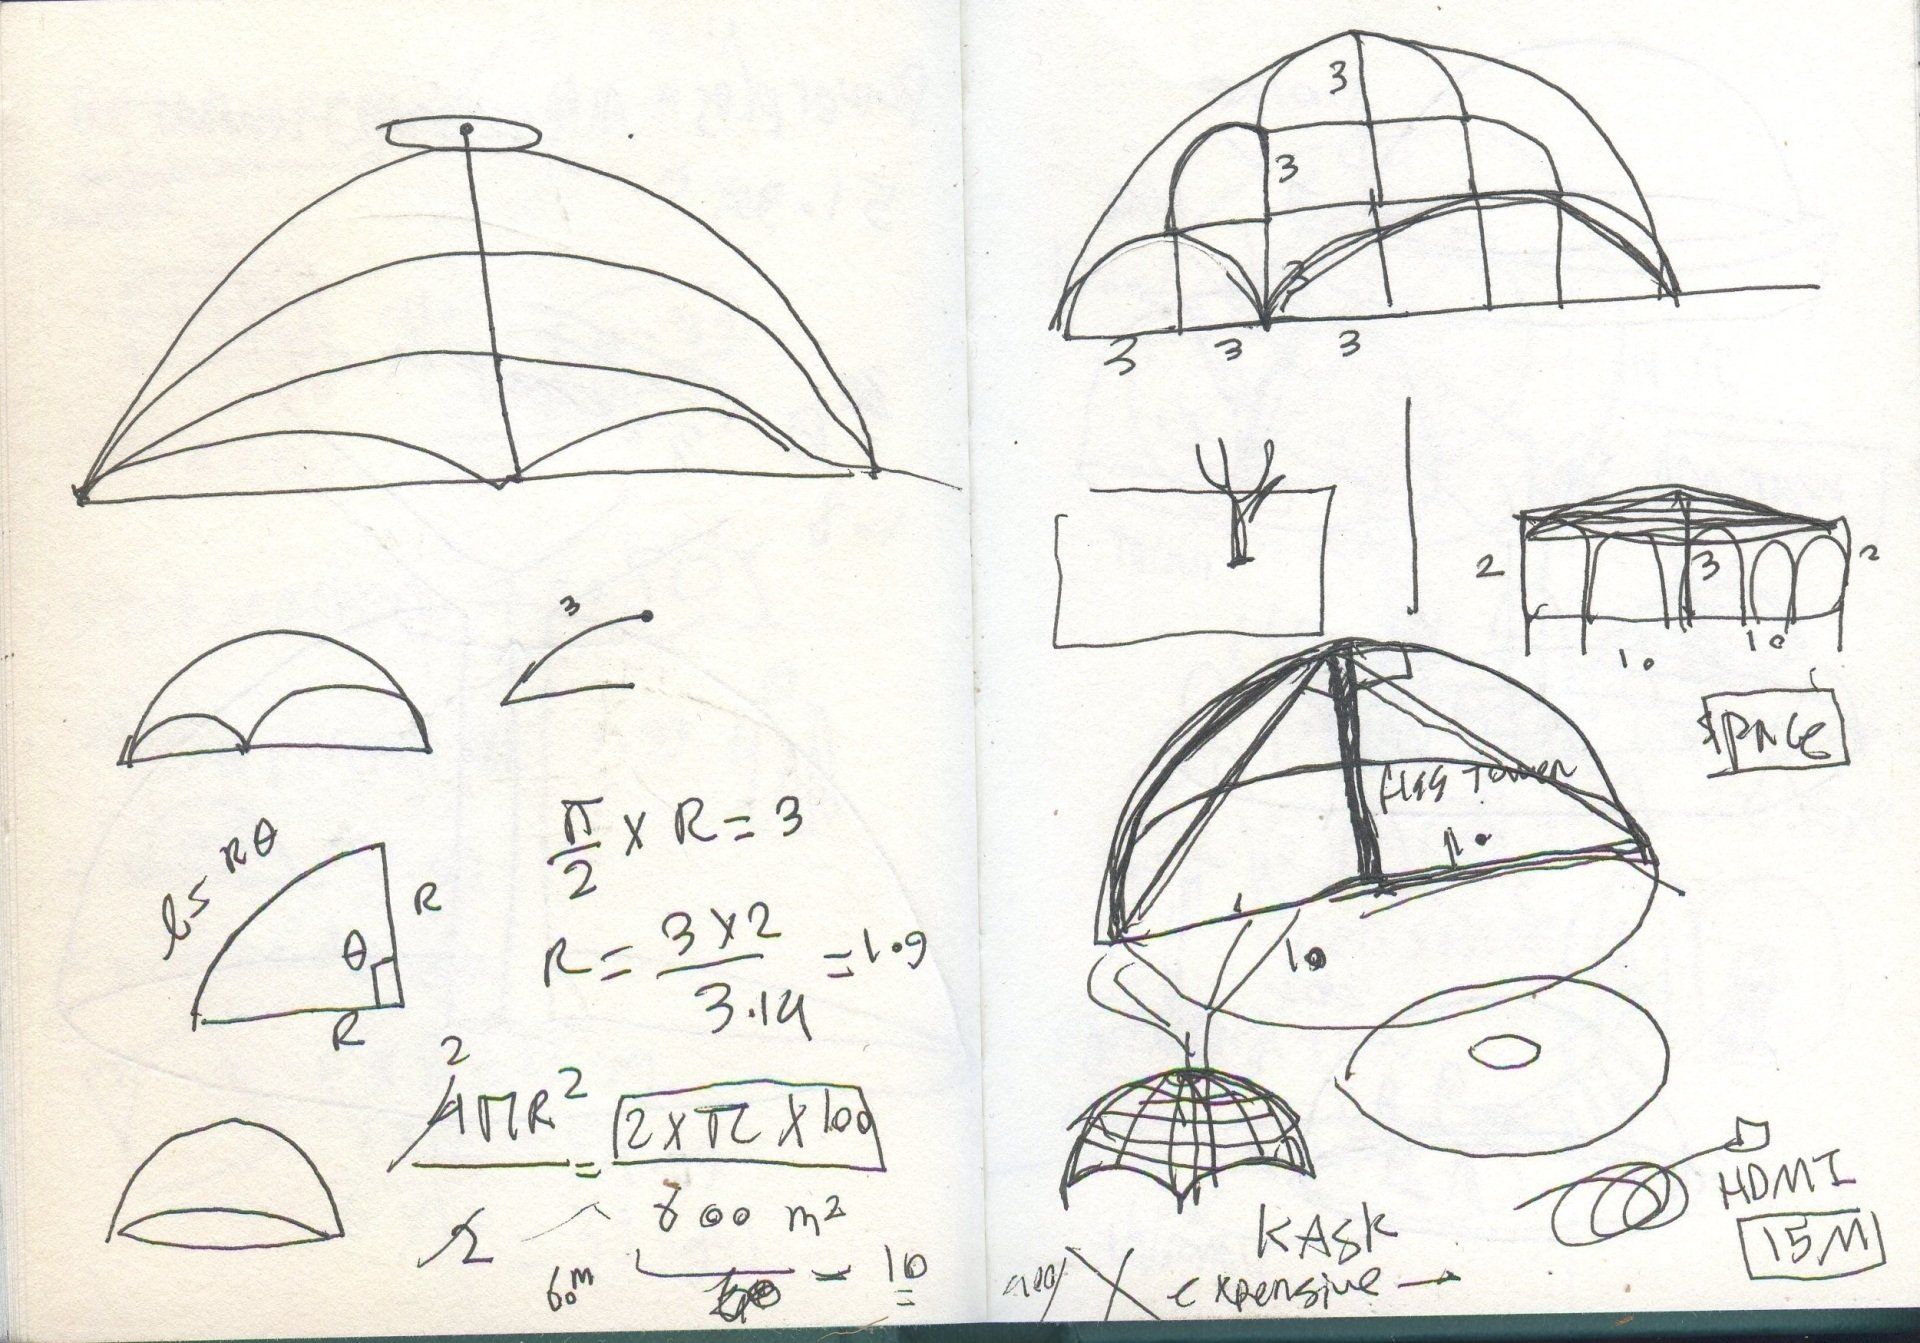 3
l = Rθ
R
θ
R
π/2 x R = 3
R = 3x2/3.14 = 1.9
2
4πR²/2 = 2 x π x 100
600 m²
60 m
60 = 10
3
3
3
3 3 3
2 3 2
10 10
SPACE
flag Tower
10
10
HDMI
15M
KASK
X expensive →